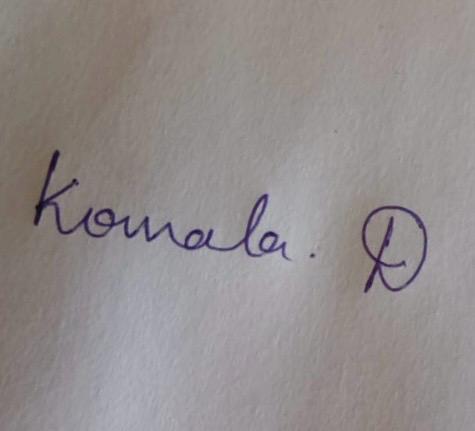 Komala. D